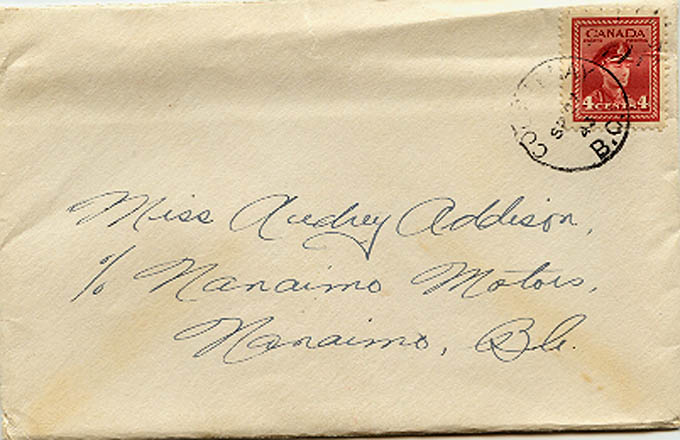 CANADA
4 CENTS 4
B.C.
Miss Audrey Addison,
c/o Nanaimo Motors,
Nanaimo, B.C.